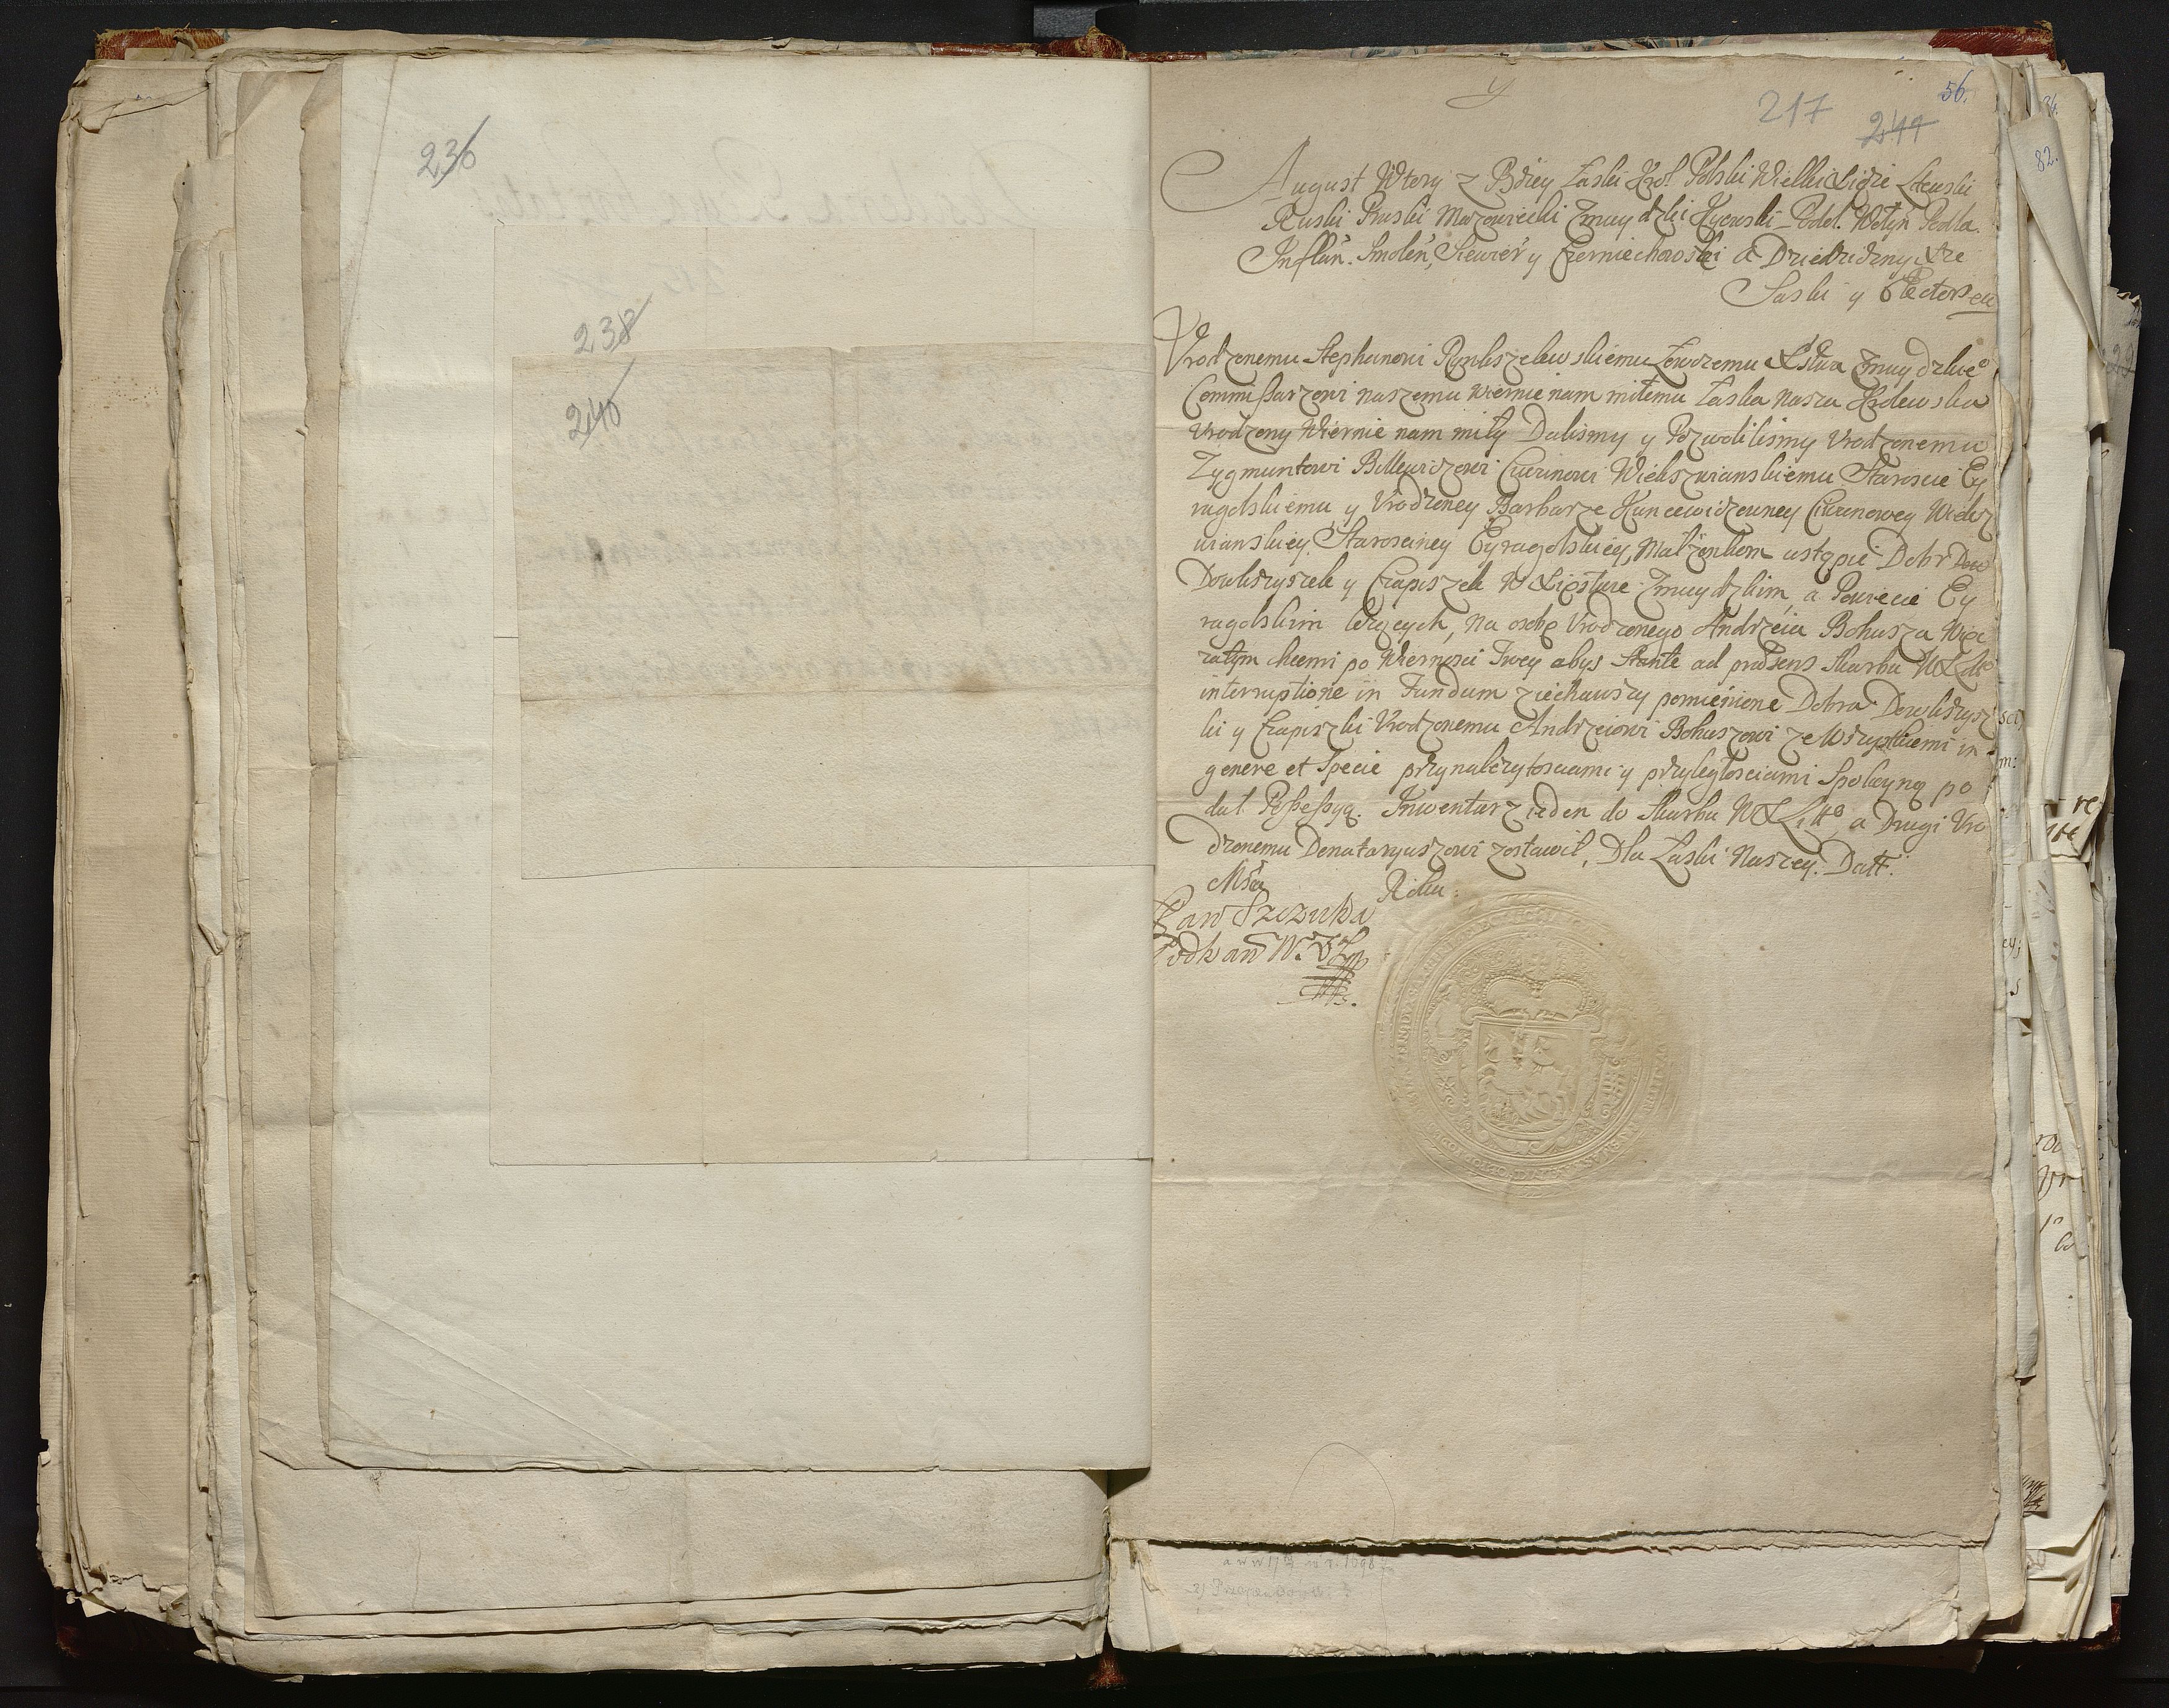 236
238
240
217
241
56.
82.
August Wtory z Bożey Łaski Krol Polski Wielki Xiąże Litewski
Ruski Pruski Mazowiecki Zmuydzki Kyiowski Podol. Wołyn Podla.
Inflan. Smolen, Siewier y Czerniechowski a Dziedziczny Xże
Saski y Elector
Vrodzonemu Stephanowi Xstwa Zmuydzkie°
Commissarzowi naszemu wiernie nam miłemu Łaska nasza Krolewska
Vrodzony Wiernie nam miły Dalismy y Pozwolilismy Vrodzonemu
Zygmuntowi Billewiczowi Ciwinowi Wiekszwianskiemu Staroscie Ey
ragolskiemu y Vrodzoney Barbarze Kuncewiczowney Ciwunowey Wieksz
wianskiey Starosciney Eyragolskiey, Małżonkom ustąpic Dobr
Dowkszyszek y Czapiszek w Xięstwie Zmuydzkim, a Powiecie Ey
ragolskim leżących, na osobę Vrodzonego Andrzeia Bohusza Więc
zatym chcemi po Wiernosci Twey abys Stante ad præsens Skarbu WXLitt°
interruptione in Fundum ziechawszy pomienione Dobra Dowkszysz
ki y Czapiszki Vrodzonemu Andrzeiowi Bohuszowi ze Wszystkiemi in
genere et Specie przynależytosciami y przyległosciami Spokoyną po
dał Possessyą. Inwentarz ieden do Skarbu WXLitt°, a Drugi Vro
dzonemu Donataryuszowi zostawił, Dla Łaski Naszey. Datt.
Msca Roku.
Szczuka
Podkan W.